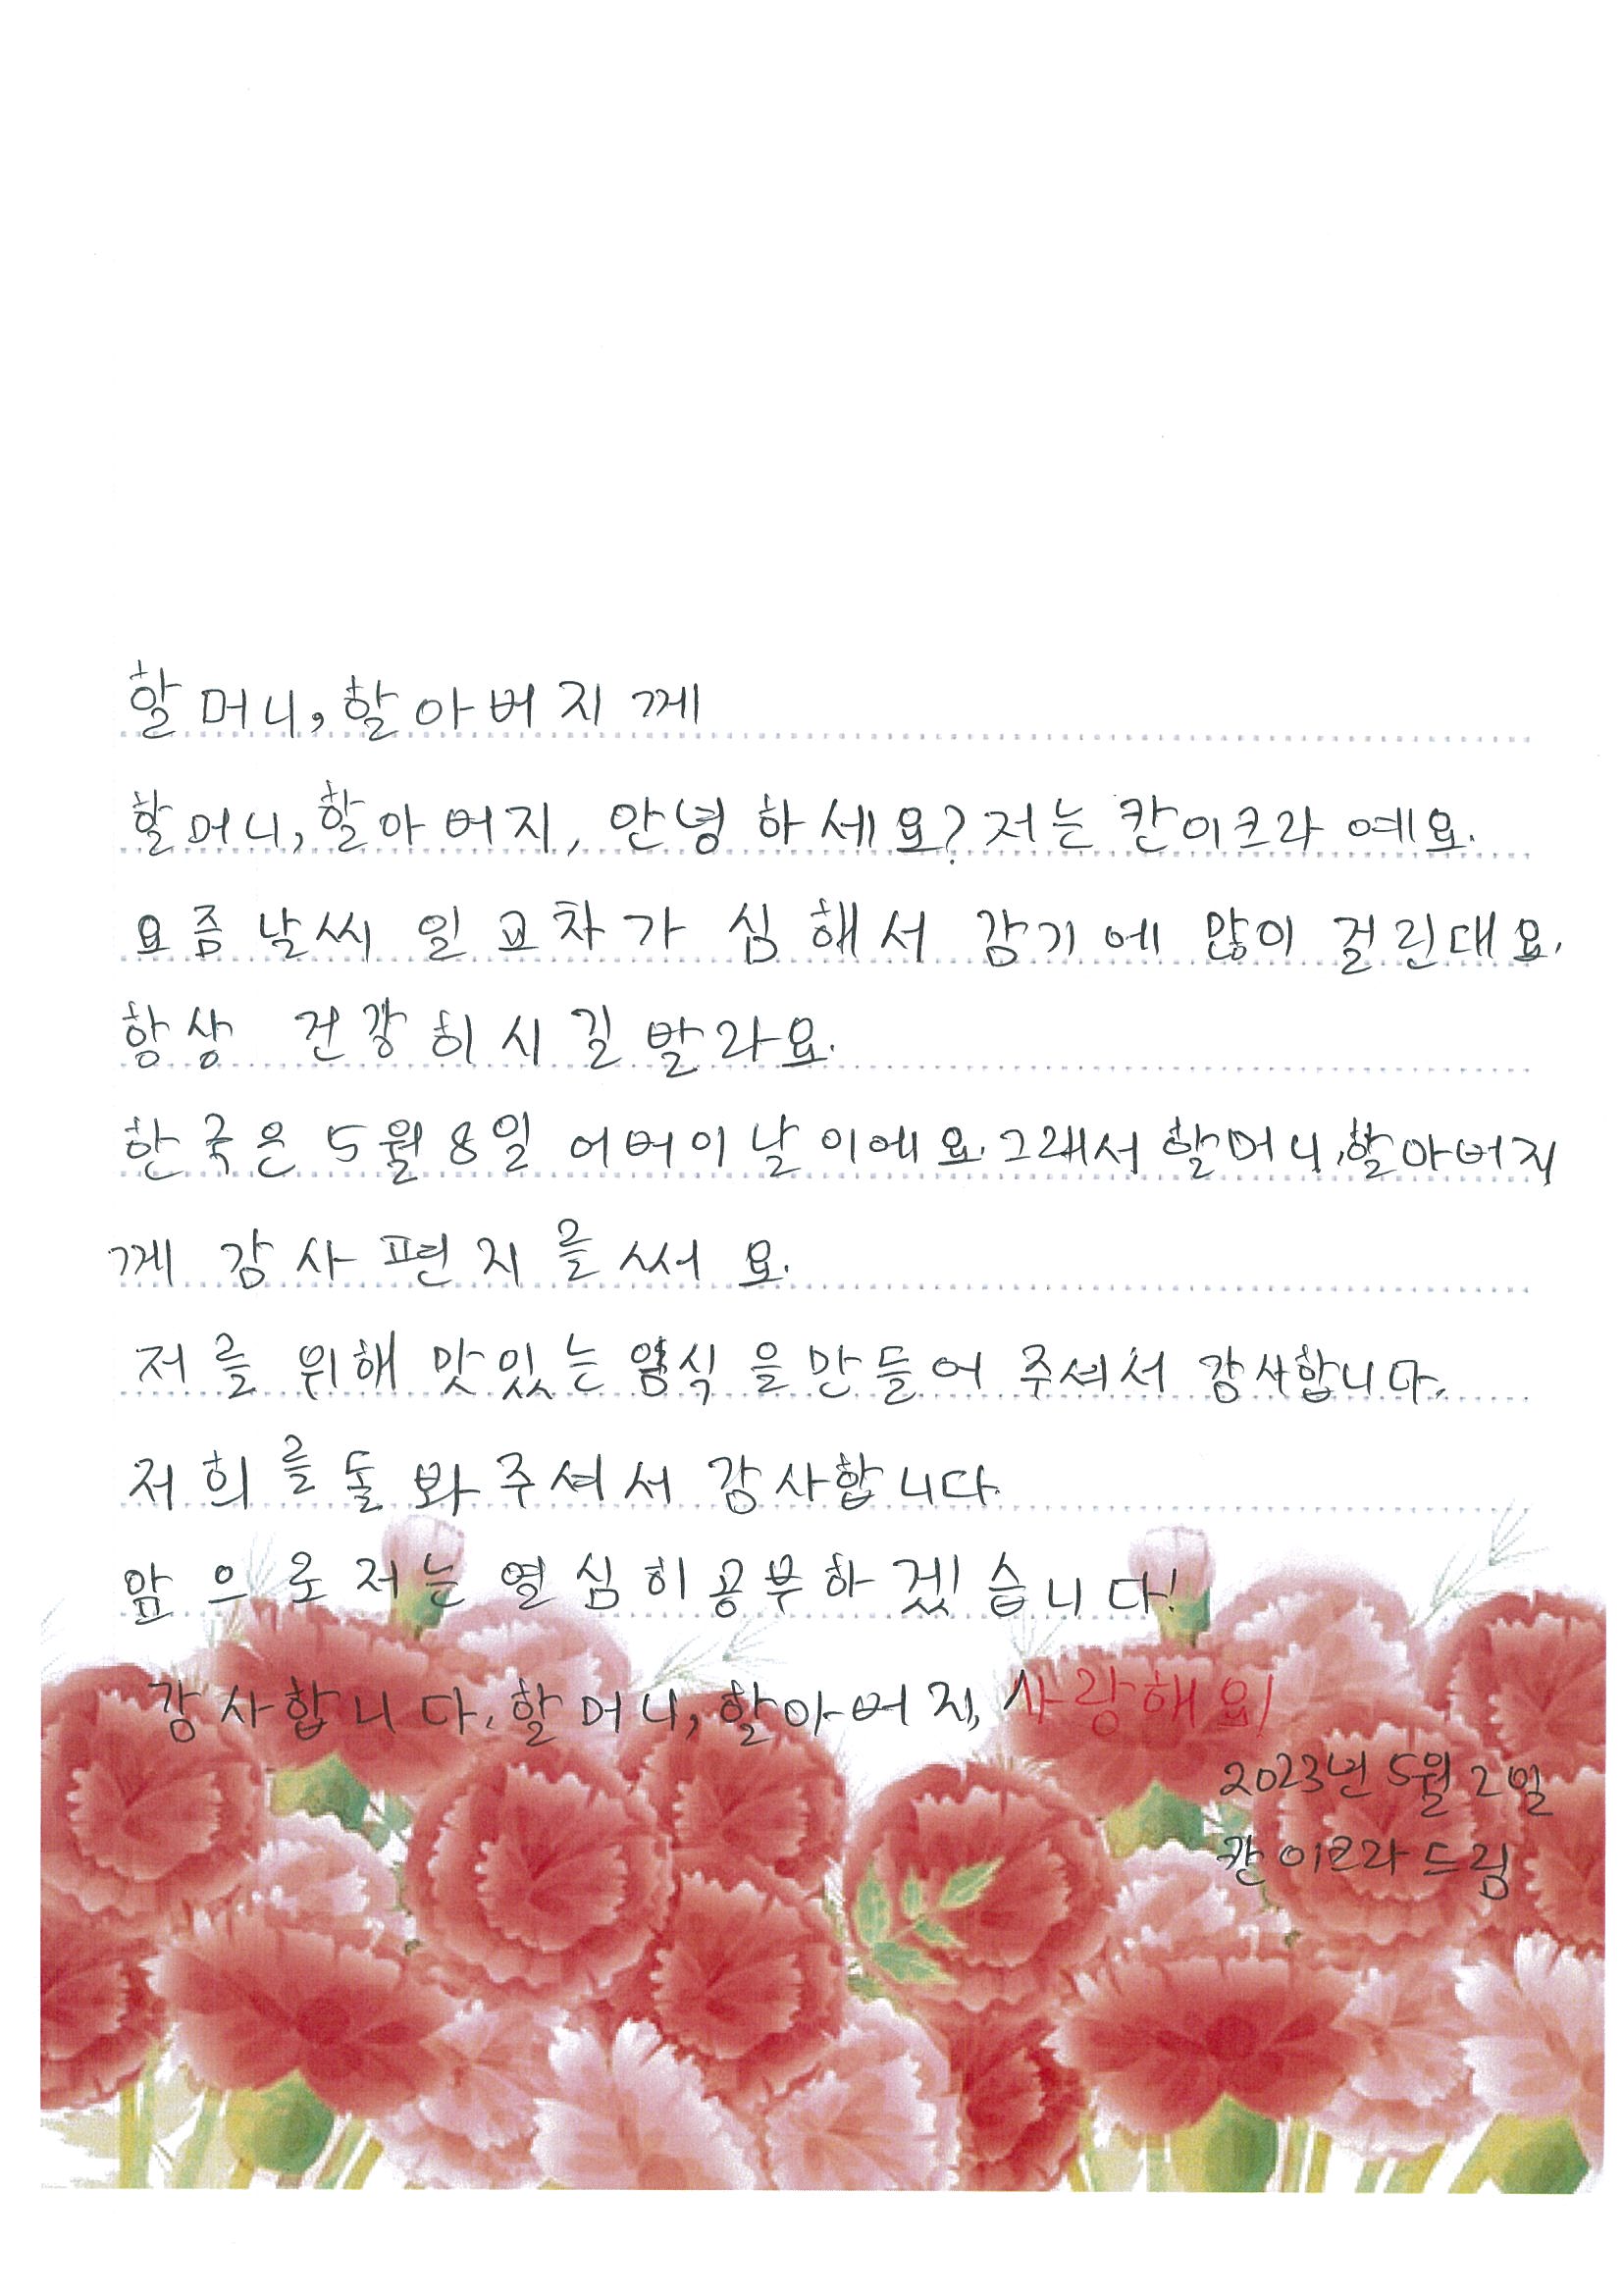 할머니, 할아버지께
할머니, 할아버지, 안녕하세요? 저는 칸이크라예요.
요즘 날씨 일교차가 심해서 감기에 많이 걸린대요.
항상 건강히시길 발라요.
한국은 5월 8일 어버이날이에요. 그래서 할머니, 할아버지
께 감사편지를 써요.
저를 위해 맛있는 음식을 만들어 주셔서 감사합니다.
저희를 돌봐주셔서 감사합니다.
앞으로 저는 열심히 공부하겠습니다!
감사합니다. 할머니, 할아버지, 사랑해요!
2023년 5월 2일
칸이크라 드림